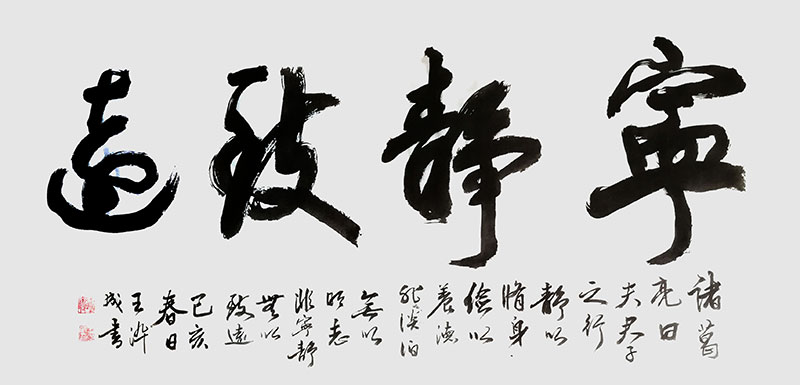 寧靜致遠
諸葛
亮曰
夫君子
之行
靜以
脩身
儉以
養德
非淡泊
無以
明志
非寧靜
無以
致遠
己亥
春日
王
成書